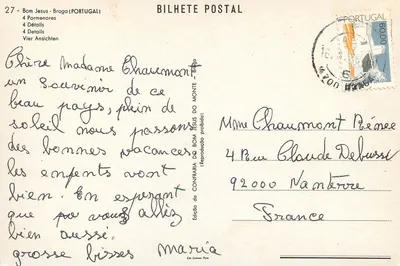 27 - Bom Jesus - Braga (PORTUGAL)
4 Pormenores
4 Détails
4 Details
Vier Ansichten
BILHETE POSTAL
PORTUGAL
Chère Madame Chaumont
un Souvenir de ce
beau pays, plein de
soleil nous passons
des bonnes vacances
les enfants vont
bien. En esperant
que vous allez
bien aussi.
grosse bisses Maria
Edição da CONFRARIA DO BOM JESUS DO MONTE
(Reprodução proibida)
Mme Chaumont Rénée
4 Rue Claude Debussi
92000 Nanterre
France